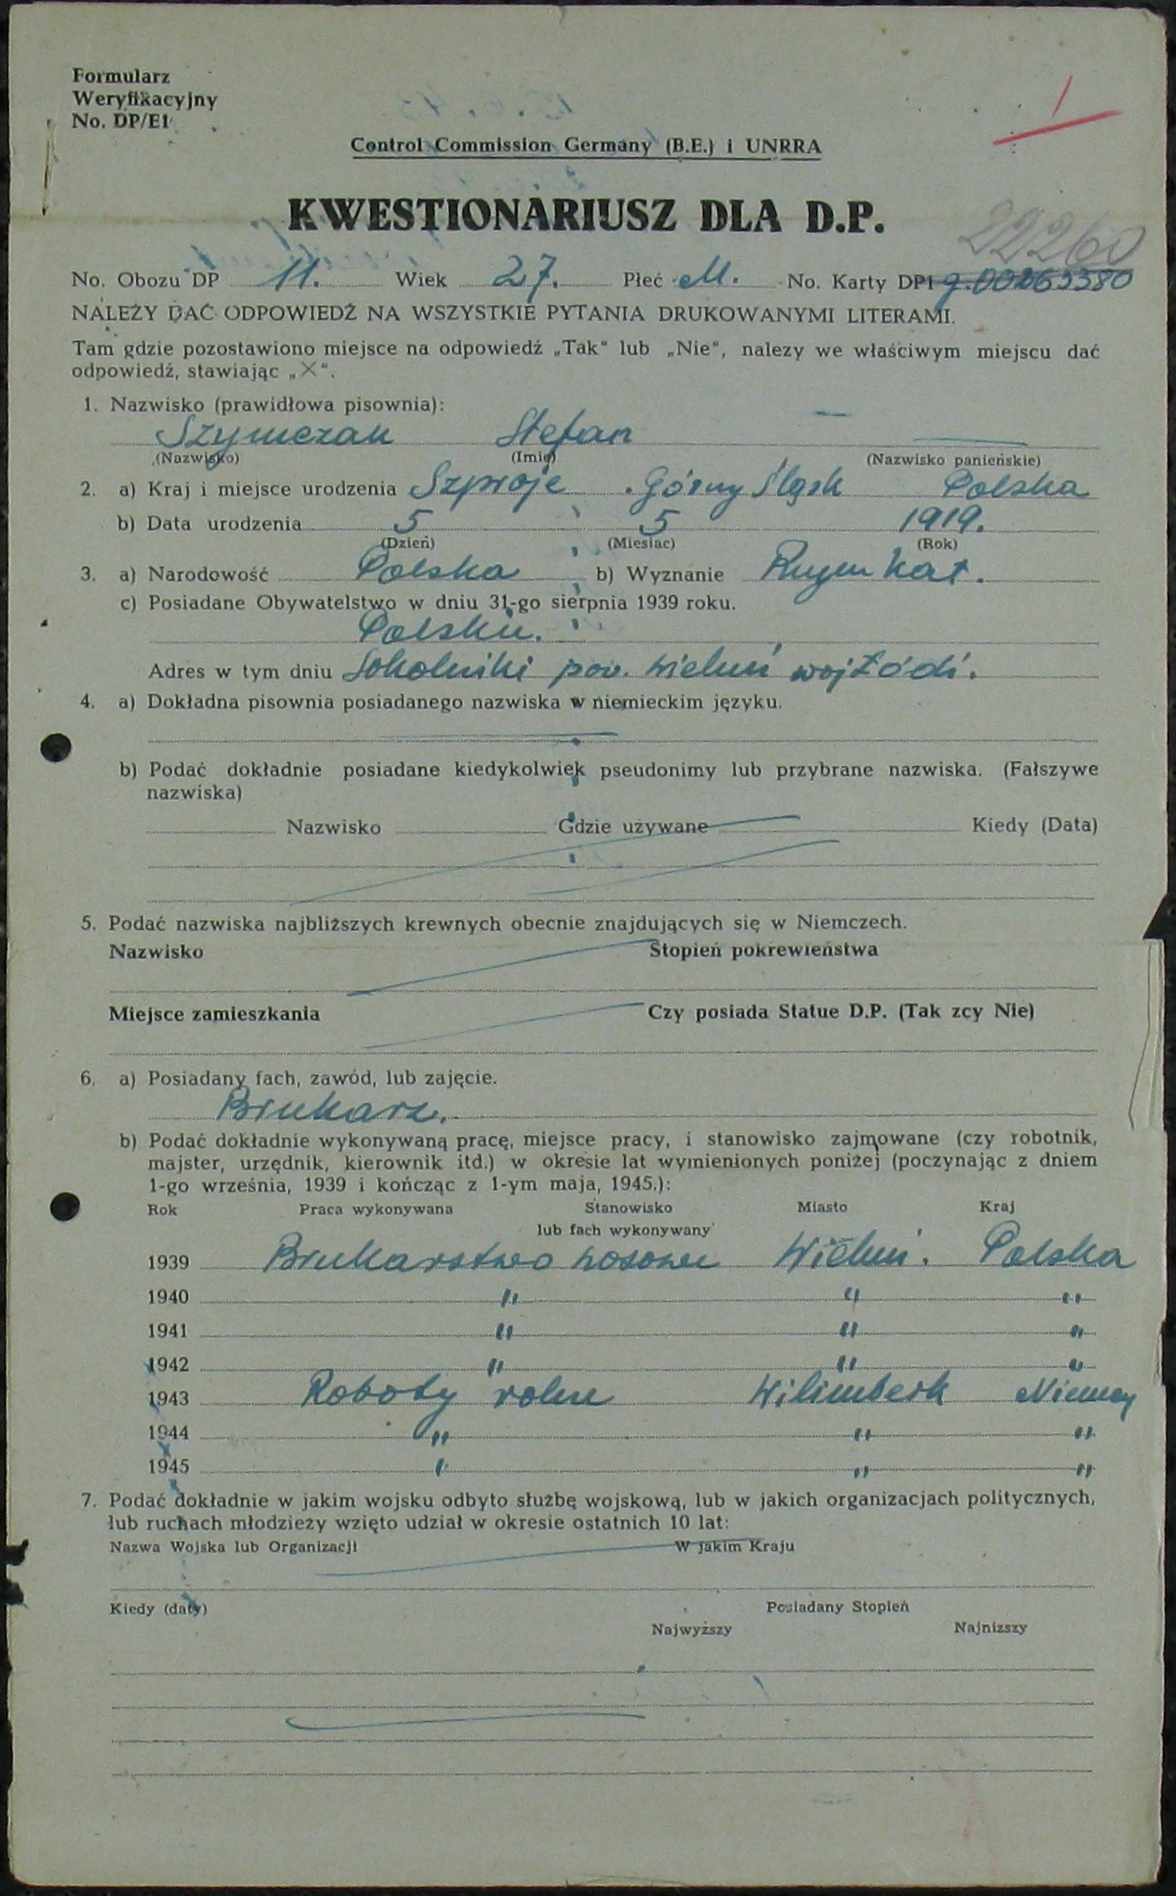 Formularz
Weryfikacyjny
No. DP/E1
Control Commission Germany (B.E.) i UNRRA
KWESTIONARIUSZ DLA D.P.
22260
No. Obozu DP 11. Wiek 27. Płeć M. No. Karty DP1 g.00265380
NALEŻY DAĆ ODPOWIEDŹ NA WSZYSTKIE PYTANIA DRUKOWANYMI LITERAMI.
Tam gdzie pozostawiono miejsce na odpowiedź „Tak“ lub „Nie“, nalezy we właściwym miejscu dać
odpowiedź, stawiając „X“.
1. Nazwisko (prawidłowa pisownia):
Szymczak Stefan —
(Nazwisko) (Imię) (Nazwisko panieńskie)
2. a) Kraj i miejsce urodzenia Szproje Górny Śląsk Polska
b) Data urodzenia 5 5 1919.
(Dzień) (Miesiac) (Rok)
3. a) Narodowość Polska b) Wyznanie Rzym kat.
c) Posiadane Obywatelstwo w dniu 31-go sierpnia 1939 roku.
Polskie.
Adres w tym dniu Sokolniki pow. Wieluń woj Łódź.
4. a) Dokładna pisownia posiadanego nazwiska w niemieckim języku.
b) Podać dokładnie posiadane kiedykolwiek pseudonimy lub przybrane nazwiska. (Fałszywe
nazwiska)
Nazwisko Gdzie używane Kiedy (Data)
5. Podać nazwiska najbliższych krewnych obecnie znajdujących się w Niemczech.
Nazwisko Stopień pokrewieństwa
Miejsce zamieszkania Czy posiada Statue D.P. (Tak zcy Nie)
6. a) Posiadany fach, zawód, lub zajęcie.
Brukarz.
b) Podać dokładnie wykonywaną pracę, miejsce pracy, i stanowisko zajmowane (czy robotnik,
majster, urzędnik, kierownik itd.) w okresie lat wymienionych poniżej (poczynając z dniem
1-go września, 1939 i kończąc z 1-ym maja, 1945.):
Rok Praca wykonywana Stanowisko Miasto Kraj
lub fach wykonywany
1939 Brukarstwo Wieluń. Polska
1940 " " "
1941 " " "
1942 " " "
1943 Roboty rolne Wilimberk Niemcy
1944 " " "
1945 " " "
7. Podać dokładnie w jakim wojsku odbyto służbę wojskową, lub w jakich organizacjach politycznych,
lub ruchach młodzieży wzięto udział w okresie ostatnich 10 lat:
Nazwa Wojska lub Organizacji W jakim Kraju
Kiedy (daty) Posiadany Stopień
Najwyższy Najnizszy